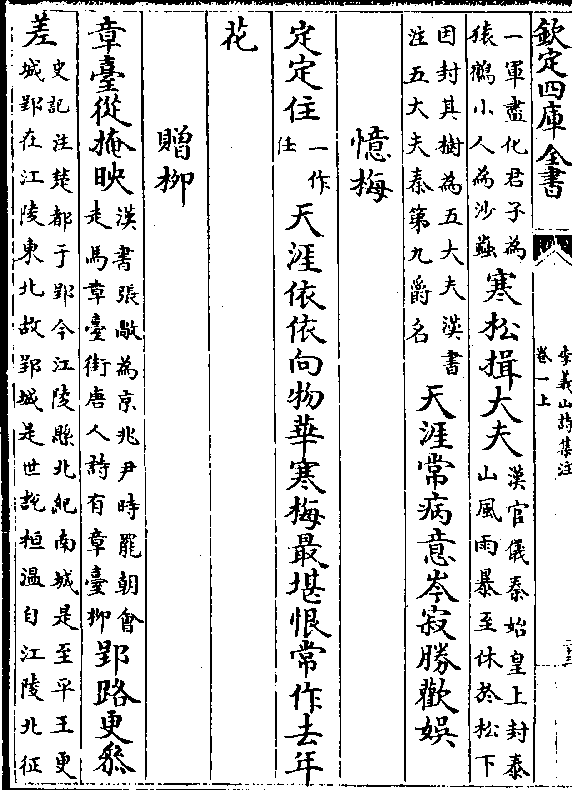 欽定四庫全書
李義山詩集注
卷一上
一軍盡化君子為
猿鶴小人為沙蟲
寒松揖大夫
漢官儀秦始皇上封泰
山風雨暴至休於松下
因封其樹為五大夫漢書
注五大夫秦第九爵名
天涯常病意岑寂勝歡娛
憶梅
定定住
一作
住
天涯依依向物華寒梅最堪恨常作去年
花
贈柳
章臺從掩映
漢書張敞為京兆尹時罷朝會
走馬章臺街唐人詩有章臺柳
郢路更參
差
史記注楚都于郢今江陵縣北紀南城是至平王更
城郢在江陵東北故郢城是世說桓溫自江陵北征